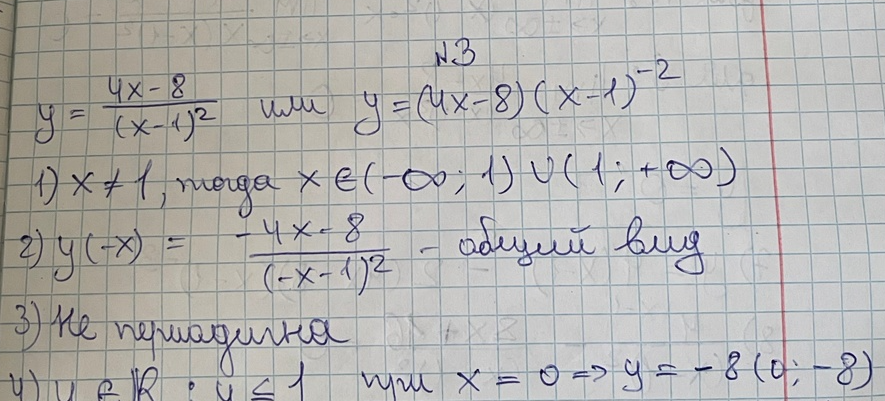 N3
y = (4x-8)/(x-1)² или y = (4x-8)(x-1)⁻²
1) x ≠ 1, тогда x ∈ (-∞; 1) ∪ (1; +∞)
2) y(-x) = (-4x-8)/(-x-1)² - общий вид
3) Не периодична
4) y ∈ R : y ≤ 1 при x = 0 => y = -8 (0; -8)